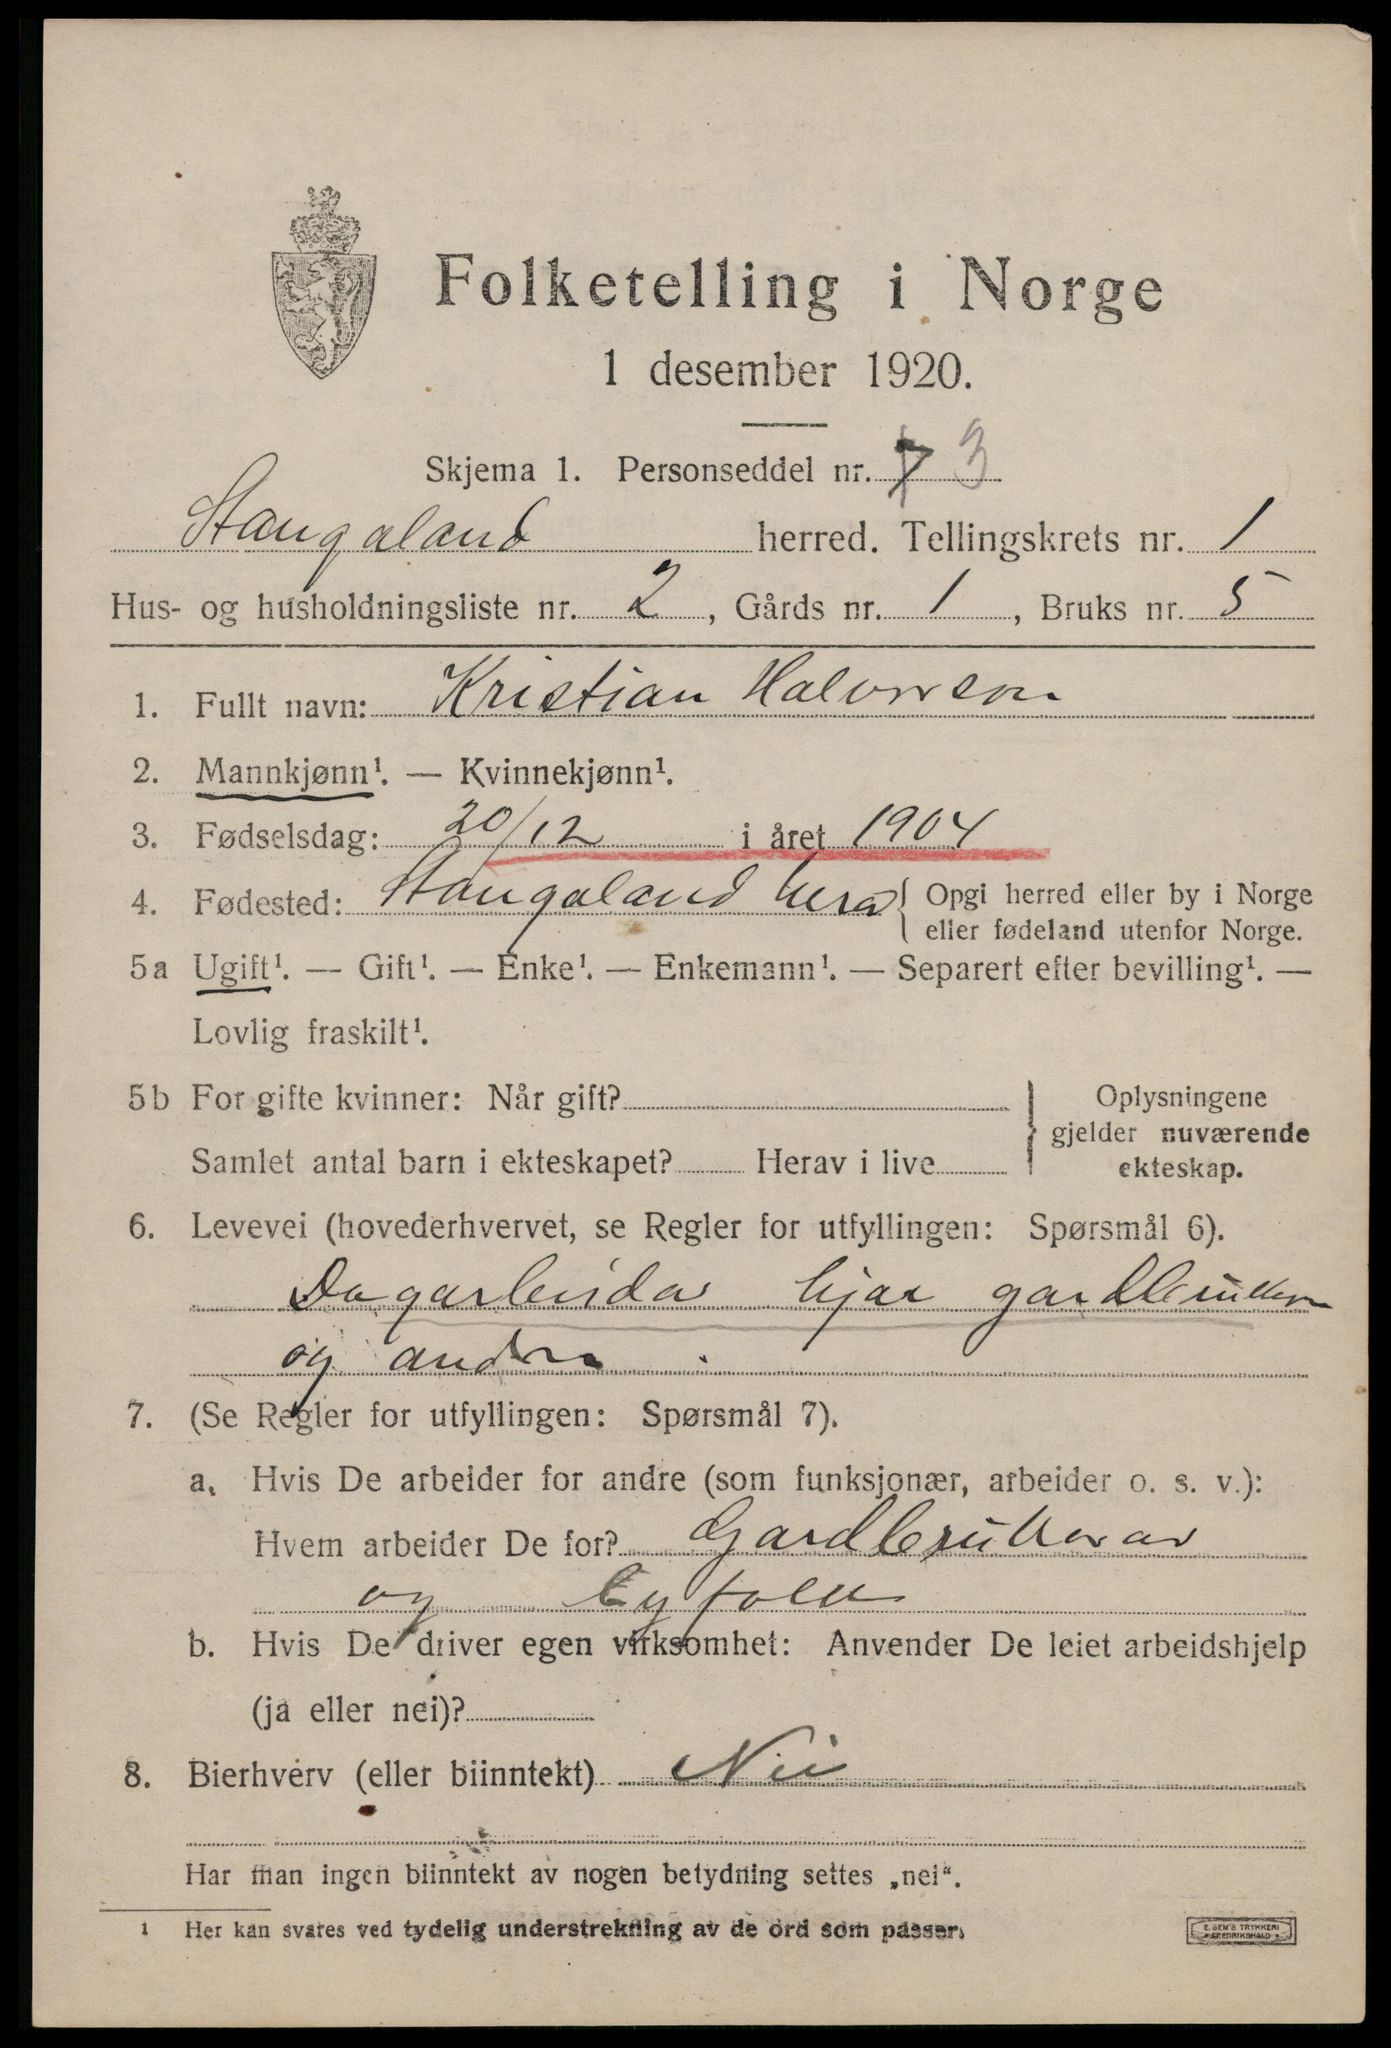 Folketelling i Norge
1 desember 1920.
Skjema 1. Personseddel nr. 7 3
Stangaland herred. Tellingskrets nr. 1
Hus- og husholdningsliste nr. 2, Gårds nr. 1, Bruks nr. 5
1. Fullt navn: Kristian Halvorsen
2. Mannkjønn¹. — Kvinnekjønn¹.
3. Fødselsdag: 20/12 i året 1904
4. Fødested: Stangaland herad { Opgi herred eller by i Norge
eller fødeland utenfor Norge.
5a Ugift¹. — Gift¹. — Enke¹. — Enkemann¹. — Separert efter bevilling¹. —
Lovlig fraskilt¹.
5b For gifte kvinner: Når gift?
Samlet antal barn i ekteskapet? Herav i live
} Oplysningene
gjelder nuværende
ekteskap.
6. Levevei (hovederhvervet, se Regler for utfyllingen: Spørsmål 6).
Dagarbeidar hjae gardbrukera
og andre.
7. (Se Regler for utfyllingen: Spørsmål 7).
a. Hvis De arbeider for andre (som funksjonær, arbeider o. s. v.):
Hvem arbeider De for? Gardbrukarar
og byfolk
b. Hvis De driver egen virksomhet: Anvender De leiet arbeidshjelp
(ja eller nei)?
8. Bierhverv (eller biinntekt) Nei
Har man ingen biinntekt av nogen betydning settes „nei“.
1 Her kan svares ved tydelig understrekning av de ord som passer.
E. SEM'S TRYKKERI
FREDRIKSHALD